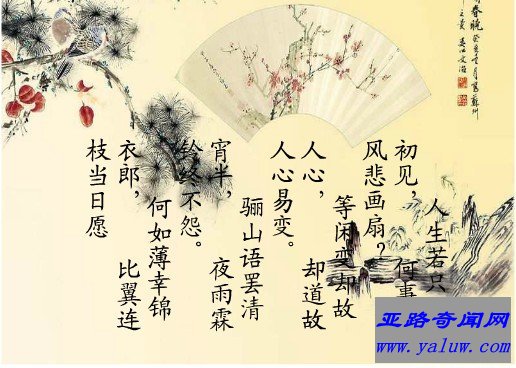 人生若只
初见， 何事
风悲画扇？
等闲变却故
人心， 却道故
人心易变。
骊山语罢清
宵半， 夜雨霖
铃终不怨。
何如薄幸锦
衣郎， 比翼连
枝当日愿
亚路奇闻网
www.yaluw.com